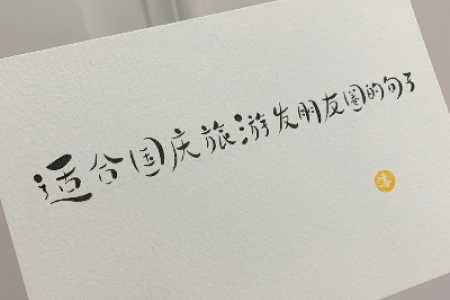 适合国庆旅游发朋友圈的句子